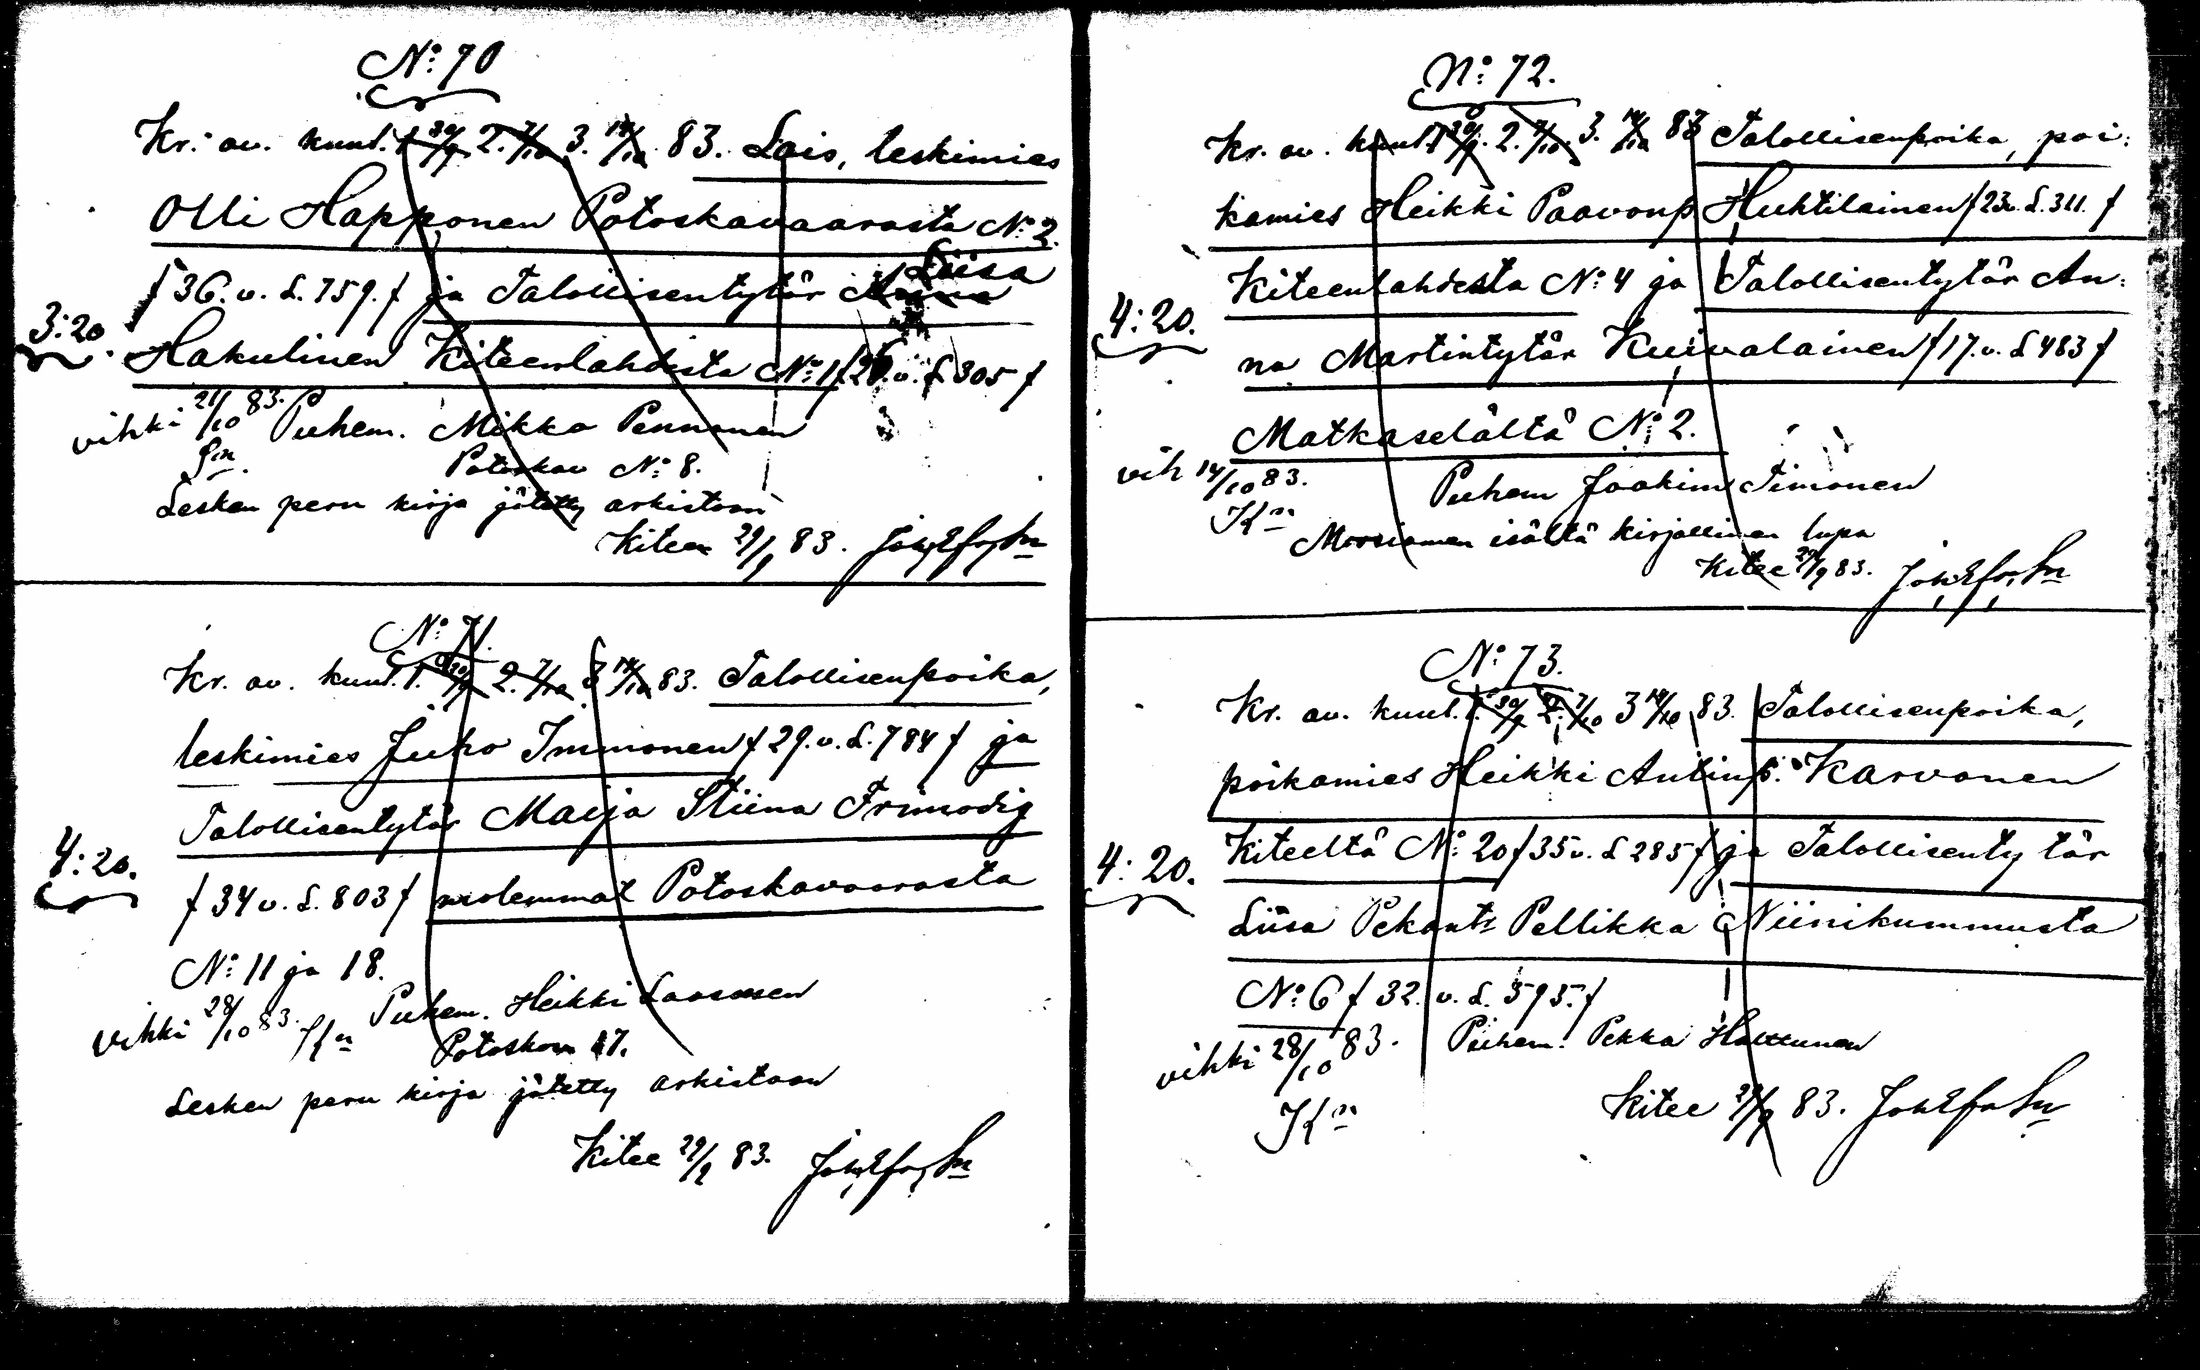 No: 70
Kr. av. kuul. 1. 30/9 2. 7/10 3. 14/10 83. Lois, leskimies
Olli Happonen Potoskavaarasta No: 2.
/36. v. L. 759./ ja Talollisentytär Anna Liisa
3:20
Hakulinen Kiteenlahdesta No: 1 /26. v. L 305/
vihki 21/10 83. Puhem. Mikko Pennanen
Potoskav No: 8.
Lesken peru kirja jätetty arkistoon
Kitee 29/9 83.
No: 71.
Kr. av. kuul. 1. 30/9 2. 7/10 3 14/10 83. Talollisenpoika,
leskimies Juho Immonen /29. v. L. 784/ ja
Talollisentytär Maija Stiina Frimodig
4:20.
/34 v. L. 803/ molemmat Potoskavaarasta
No: 11 ja 18.
vihki 28/10 83. Puhem. Heikki Laasonen
Potoskav 17.
Lesken peru kirja jätetty arkistoon
Kitee 29/9 83.
No: 72.
Kr. av. kuul. 1 30/9. 2. 7/10 3. 14/10 83 Talollisenpoika, poi:
kamies Heikki Paavonp Huhtilainen /23v. L. 311./
Kiteenlahdesta No: 4 ja Talollisentytär An:
4:20.
na Martintytär Kuivalainen /17. v. L 483/
Matkaselältä No: 2.
vih 14/10 83. Puhem Joakim Timonen
Kn
Morsiamen isältä kirjallinen lupa
Kitee 29/9 83.
No: 73.
Kr. av. kuul. 1. 30/9 2. 7/10 3 14/10 83. Talollisenpoika,
poikamies Heikki Antinp. Karvonen
Kiteeltä No: 20 /35v. L 285/ ja Talollisenty tär
4:20.
Liisa Pekantr Pellikka Niinikummusta
No: 6 /32. v. L. 595./
vihki 28/10 83. Puhem. Pekka Halttunen
Kn
Kitee 29/9 83.